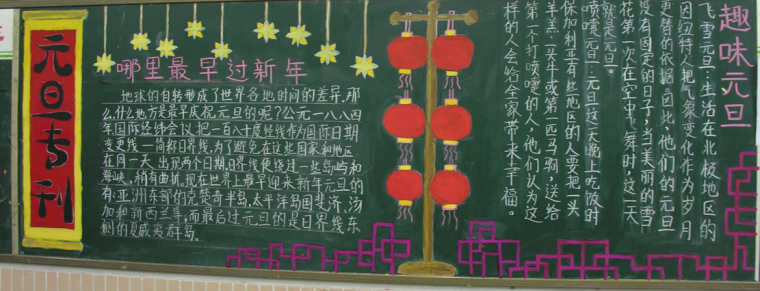 元旦专刊
哪里最早过新年
地球的自转形成了世界各地时间的差异,那
么,什么地方是最早庆祝元旦的呢?公元一八八四
年国际经纬会议把一百八十度经线作为国际日期
变更线——简称日界线,为了避免在这些国家和地区
在同一天出现两个日期,日界线便绕过一些岛屿和
海峡,稍有曲折,现在世界上最早迎来新年元旦的
有:亚洲东部的楚奇半岛,太平洋岛国斐济、汤
加和新西兰等,而最后过元旦的是日界线东
侧的夏威夷群岛。
趣味元旦
飞雪元旦:生活在北极地区的
因纽特人把气象变化作为岁月
更替的依据。因此,他们的元旦
没有固定的日子,当美丽的雪
花第一次在空中飞舞时,这一天
就是元旦。
喷嚏元旦:元旦这一天晚上吃饭时
保加利亚有些地区的人要把一头
羊羔、一头牛或第一匹马驹,送给
第一个打喷嚏的人,他们认为这
样的人会给全家带来幸福。